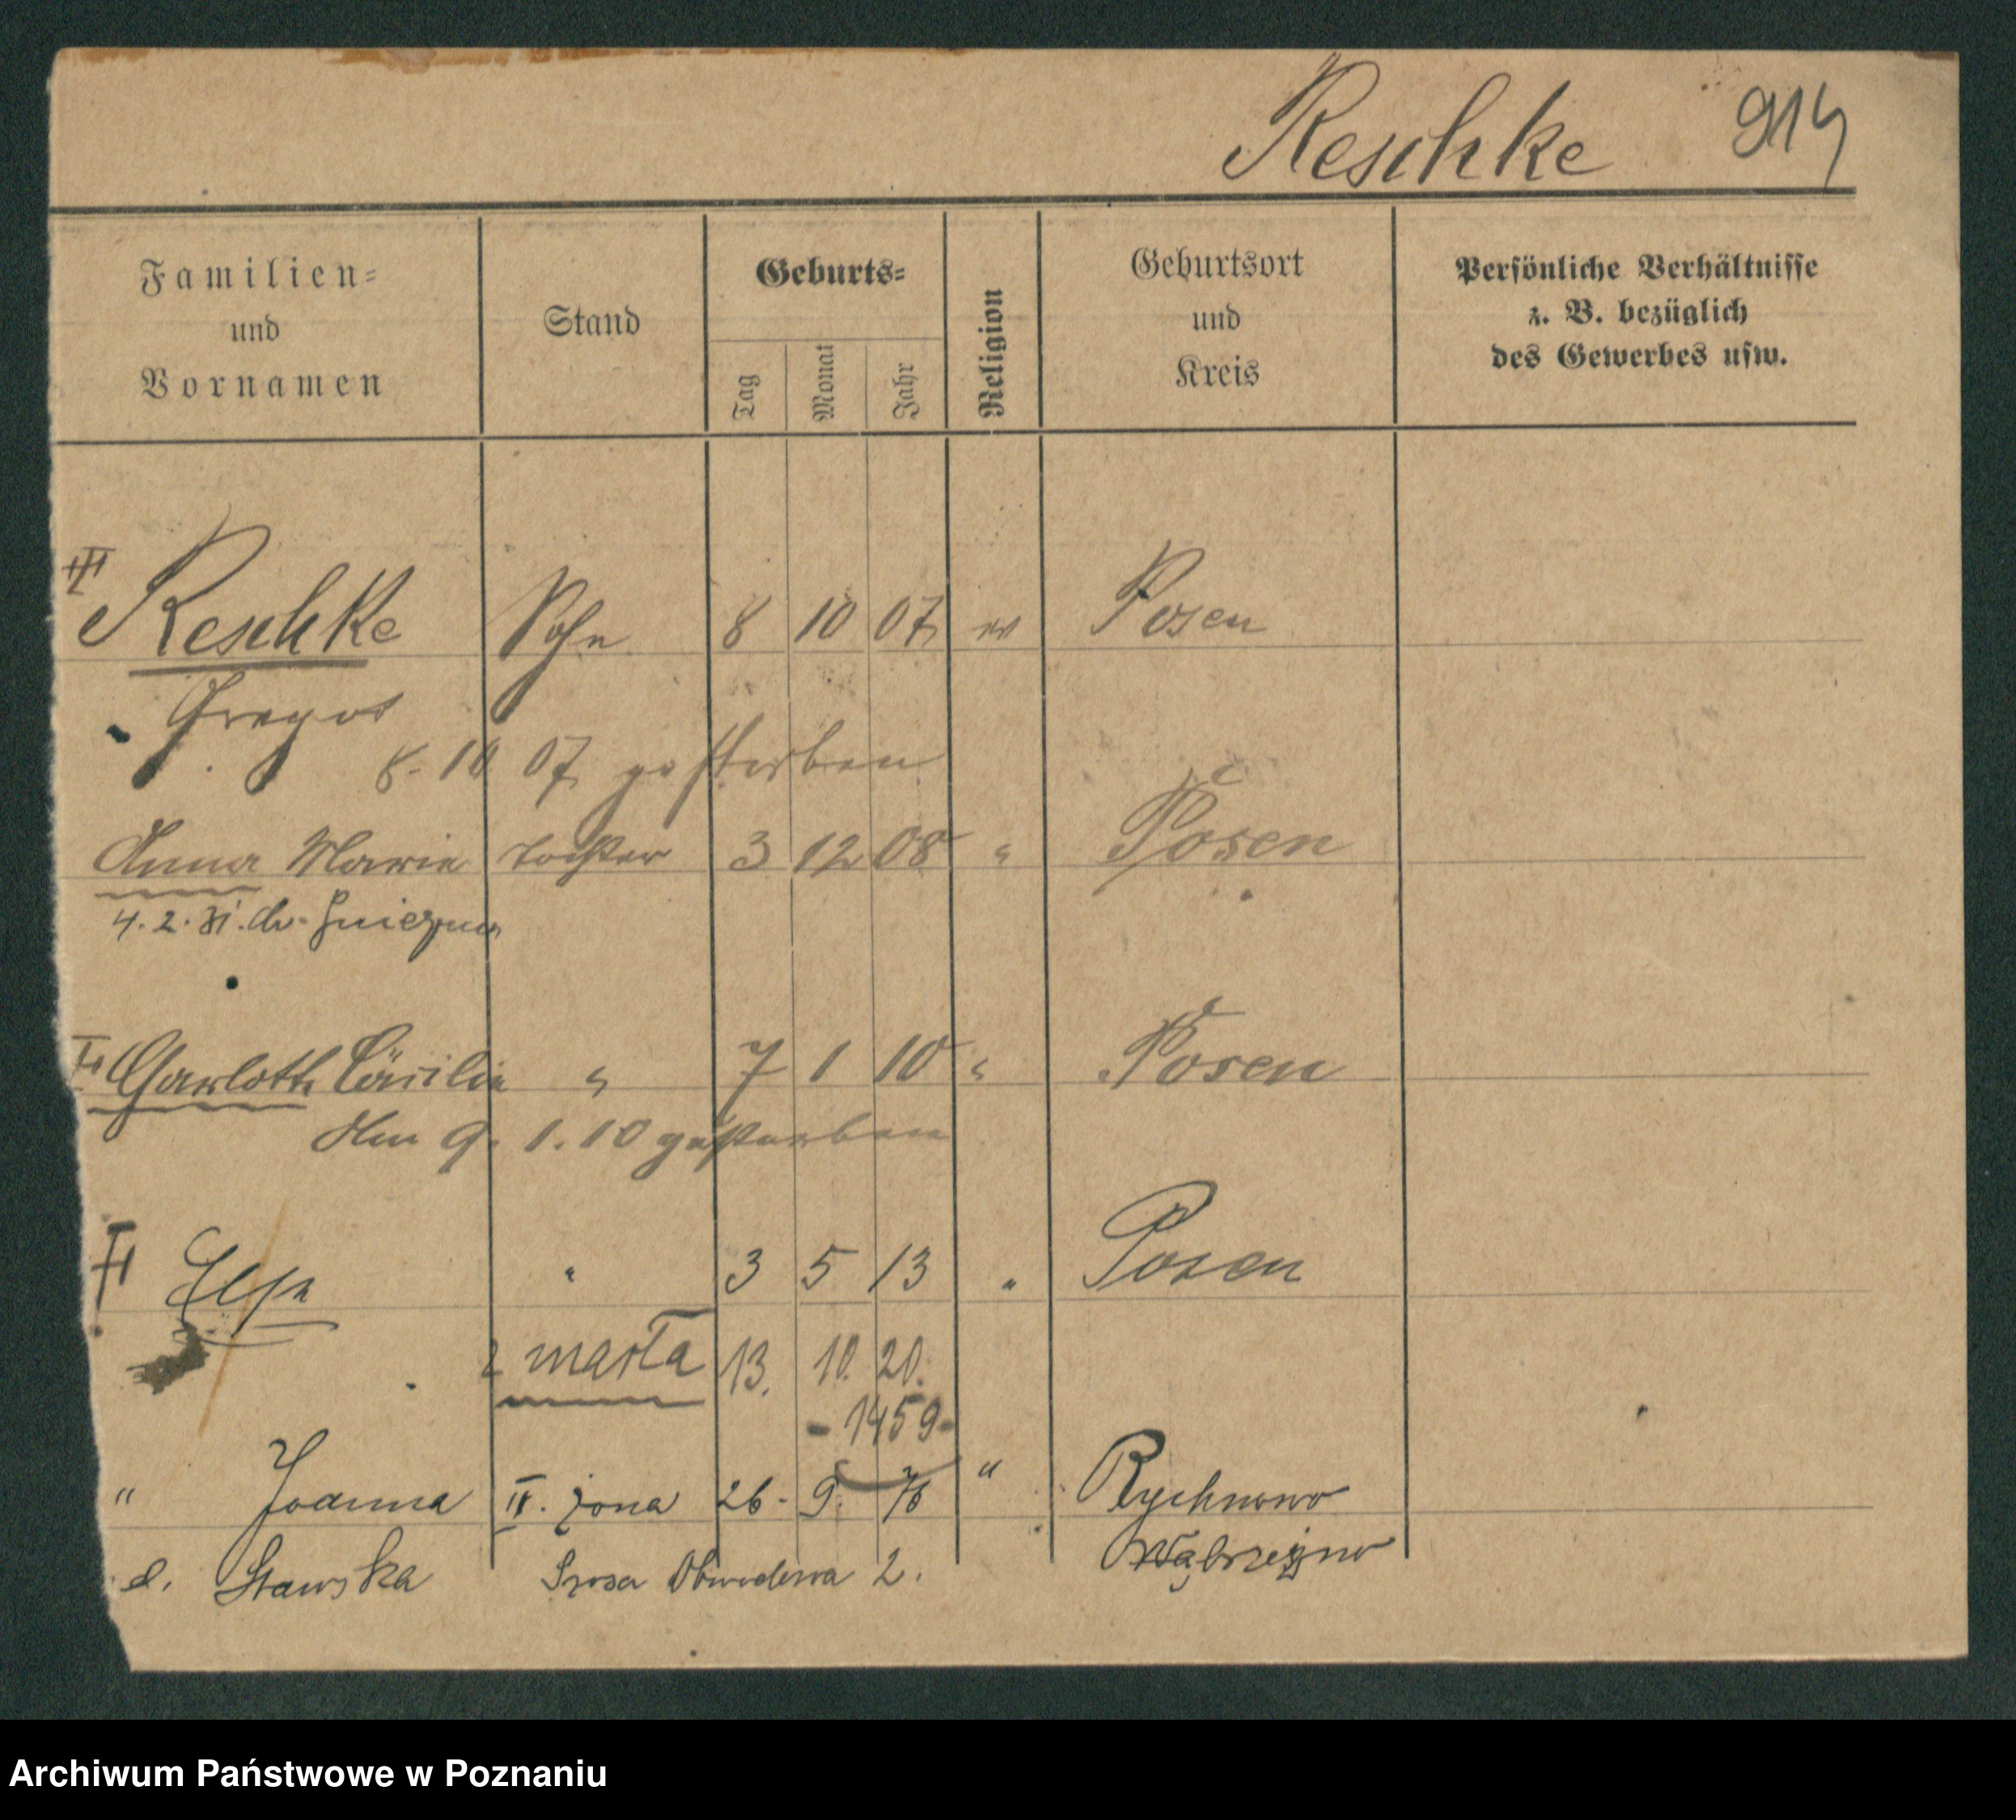 Reschke 914
Familien=
und
Vornamen
Stand
Geburts=
Tag
Monat
Jahr
Religion
Geburtsort
und
Kreis
Persönliche Verhältnisse
z. B. bezüglich
des Gewerbes usw.
Reschke Sohn 8 10 07 Posen
Gregor
8. 10 07 gestorben
Anna Marie Tochter 3 12 08 " Posen
4. 2. 31. do Gniezna
Charlotte Cäcilie " 7 1 10 " Posen
Am 9. 1. 10 gestorben
Else " 3 5 13 " Posen
z marta 13. 10. 20.
- 1459 -
" Joanna II. żona 26. 9. 76 " Rychnowo
d. Stawska Szosa Obwodowa 2. Wąbrzeźno
Archiwum Państwowe w Poznaniu